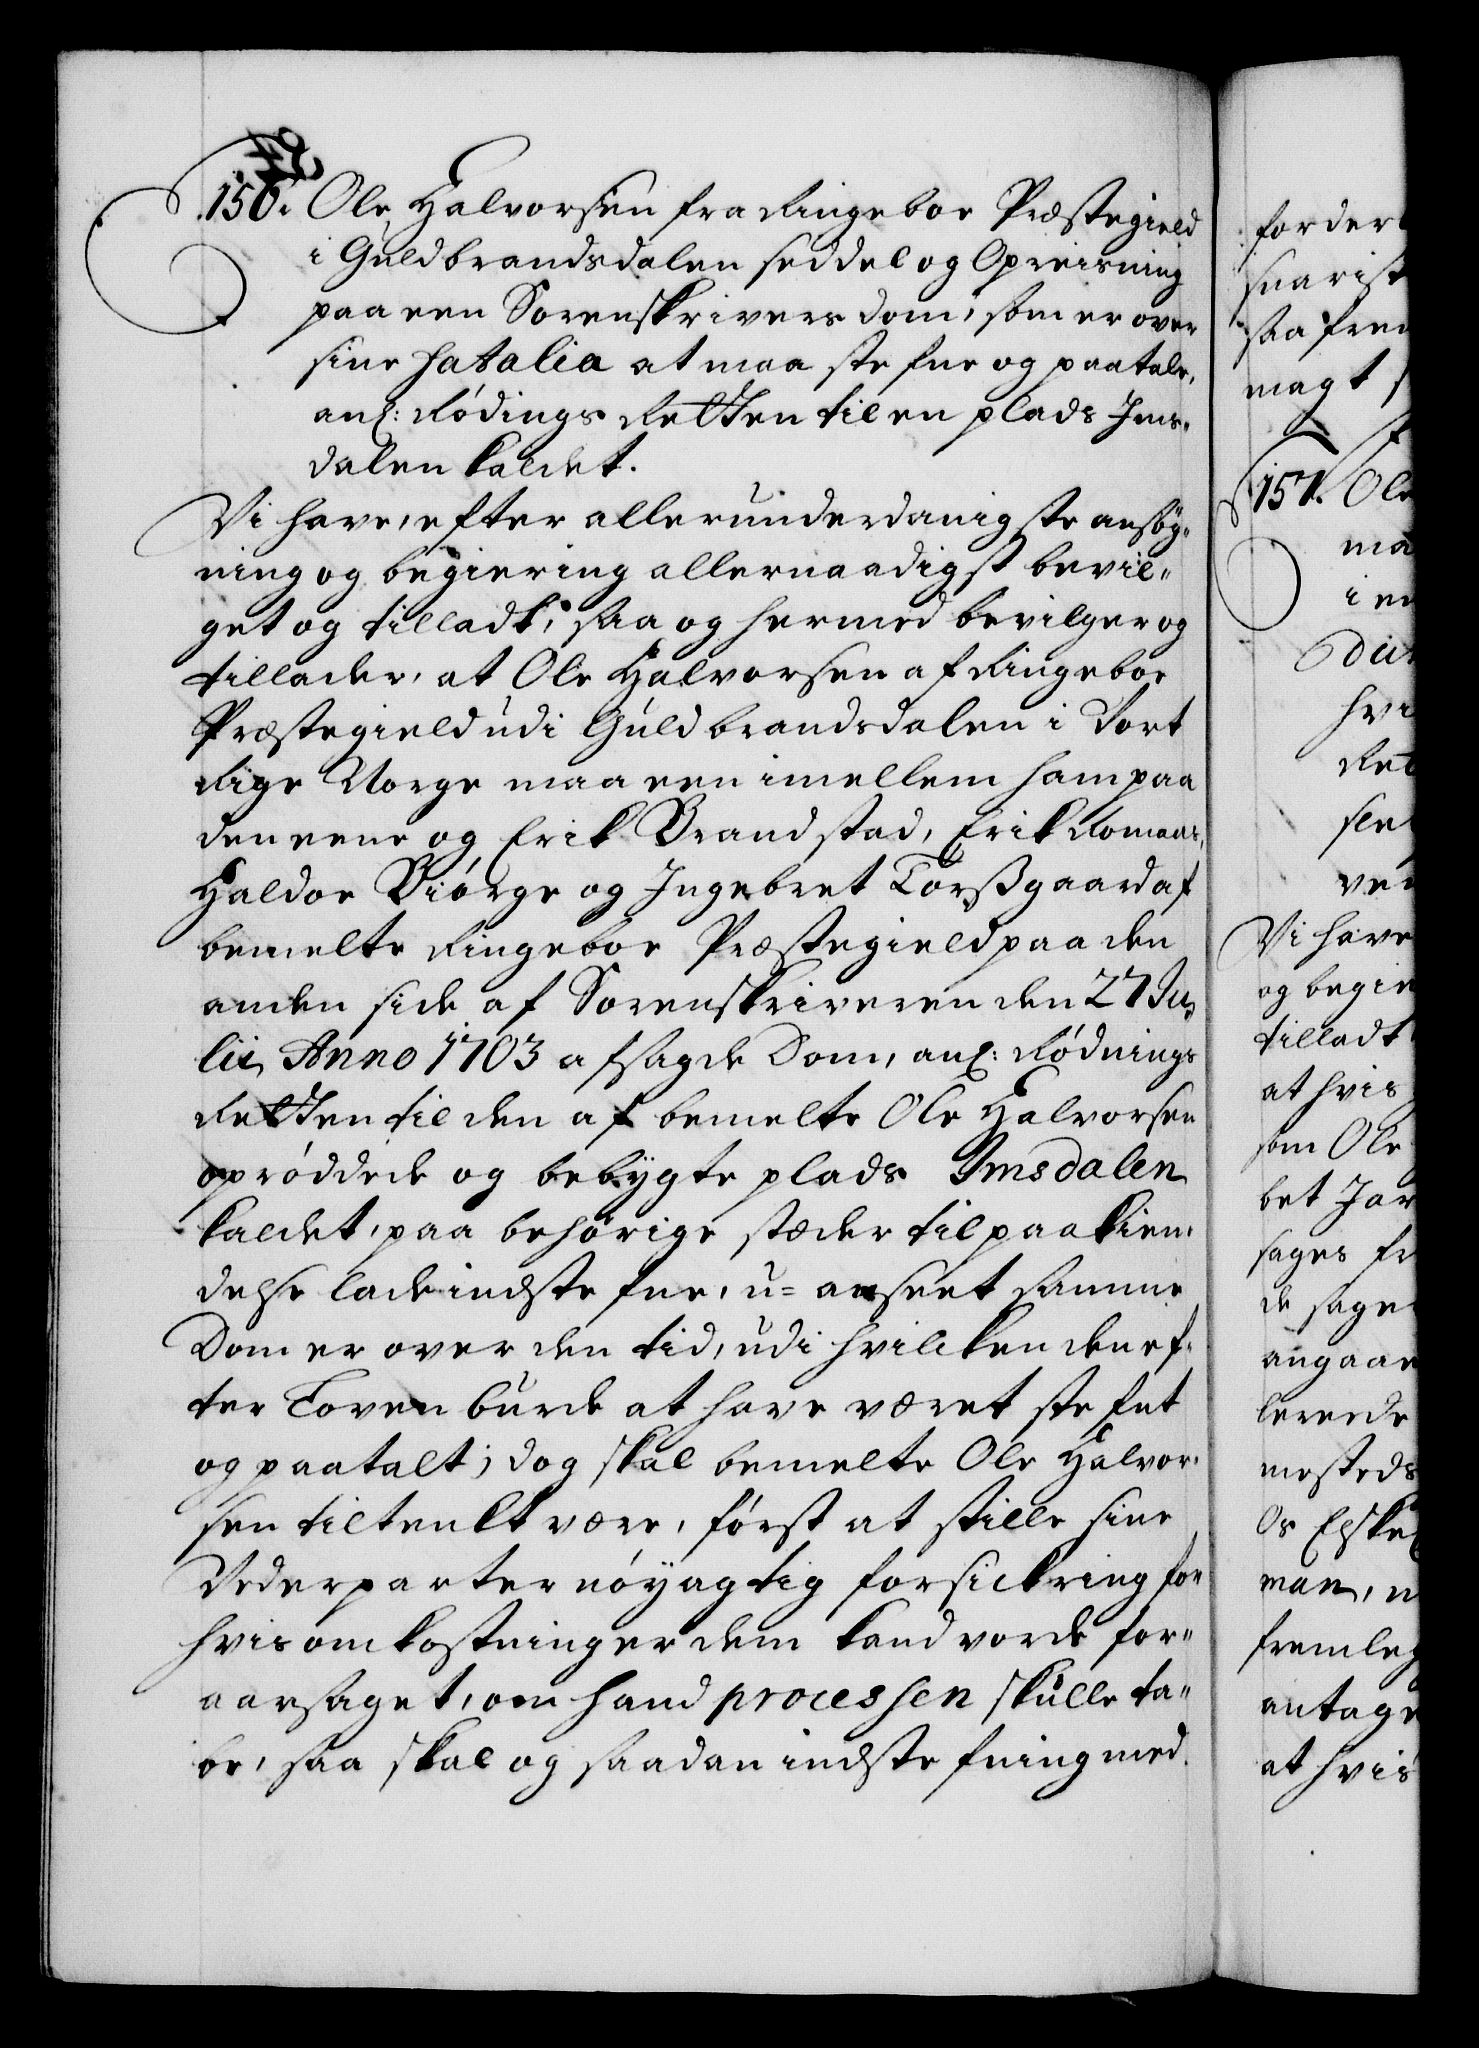 150. Ole Halvorsen fra Ringeboe Præstegield
i Guldbrandsdalen seddel og Opreisning
paa een Sorenskrivers dom, som er over
sine fatalia at maa stefne og paatale,
anl: Rødings Retten til en plads Ims-
dalen kaldet.
Vi have, efter allerunderdanigste ansøg-
ning og begiering allernaadigst bevil-
get og tilladt, saa og hermed bevilger og
tillader, at Ole Halvorsen af Ringeboe
Præstegield udi Guldbrandsdalen i Vort
Rige Norge maa een imellem ham paa
den eene og Erik Brandstad, Erik Romaas,
Haldor Biørge og Ingebret Torßgaard af
bemelte Ringeboe Præstegield paa den
anden side af Sorenskriveren den 27 Ju-
lii Anno 1703 afsagde Dom, anl: Rødnings
Retten til den af bemelte Ole Halvorsen
oprøddede og bebygte plads Imsdalen
kaldet, paa behørige stæder til paakien-
delse lade indstefne, u-anseet samme
Dom er over den tid, udi hvilcken den ef-
ter Loven burde at have været stefnt
og paatalt; dog skal bemelte Ole Halvor-
sen tiltenkt være, først at stille sine
Vederparter nøyagtig forsickring for
hvis omkostninger dem kand vorde for-
aarsaget, om hand processen skulle ta-
be, saa skal og saadan indstefning med
forder
snarist
saa frem
magt
157. Ole
ma
i en
Vi have
og begie
tilladt
at hvis
som Ole
bet Jar
sages
de sage
angaae
lerede
mesteds
Os Elske
man,
fremleg
antage
at hvis